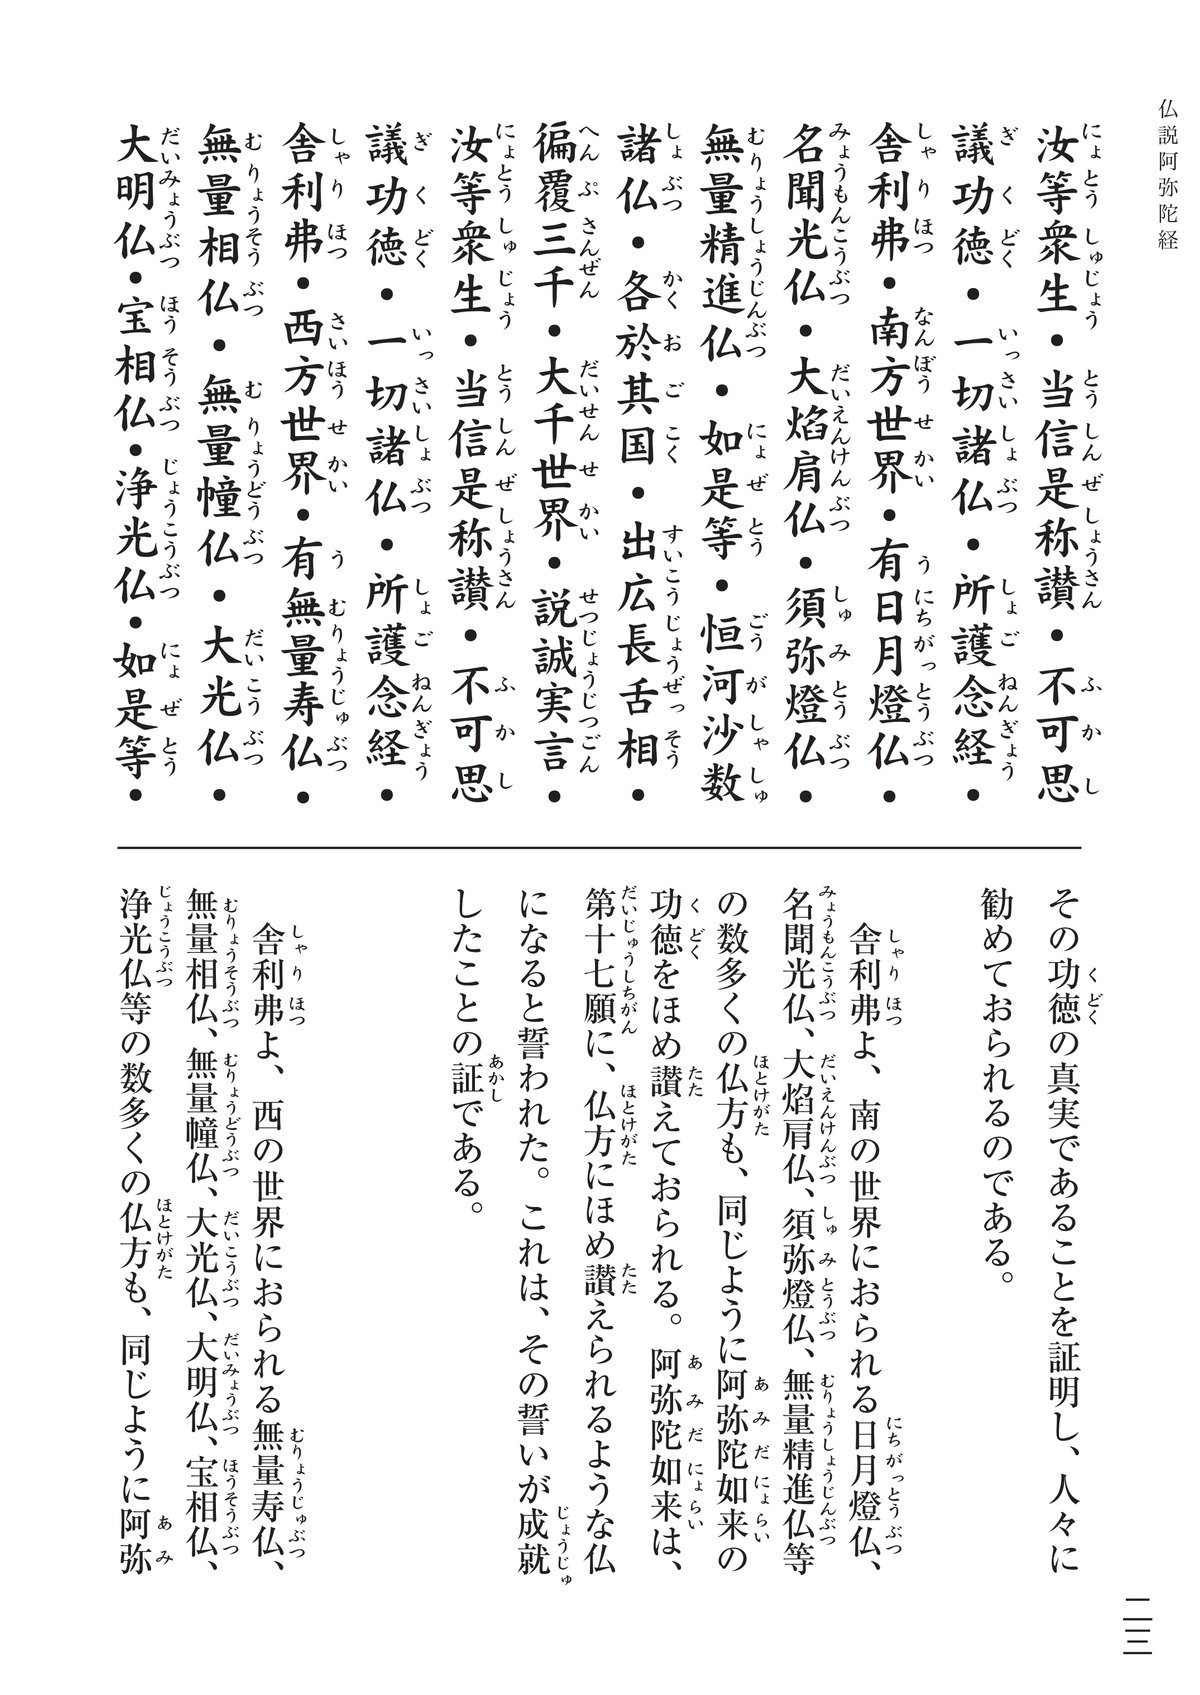 仏説阿弥陀経
汝等衆生・当信是称讃・不可思
議功徳・一切諸仏・所護念経・
舎利弗・南方世界・有日月燈仏・
名聞光仏・大焰肩仏・須弥燈仏・
無量精進仏・如是等・恒河沙数
諸仏・各於其国・出広長舌相・
徧覆三千・大千世界・説誠実言・
汝等衆生・当信是称讃・不可思
議功徳・一切諸仏・所護念経・
舎利弗・西方世界・有無量寿仏・
無量相仏・無量幢仏・大光仏・
大明仏・宝相仏・浄光仏・如是等・
その功徳の真実であることを証明し、人々に
勧めておられるのである。
舎利弗よ、南の世界におられる日月燈仏、
名聞光仏、大焰肩仏、須弥燈仏、無量精進仏等
の数多くの仏方も、同じように阿弥陀如来の
功徳をほめ讃えておられる。阿弥陀如来は、
第十七願に、仏方にほめ讃えられるような仏
になると誓われた。これは、その誓いが成就
したことの証である。
舎利弗よ、西の世界におられる無量寿仏、
無量相仏、無量幢仏、大光仏、大明仏、宝相仏、
浄光仏等の数多くの仏方も、同じように阿弥
二三